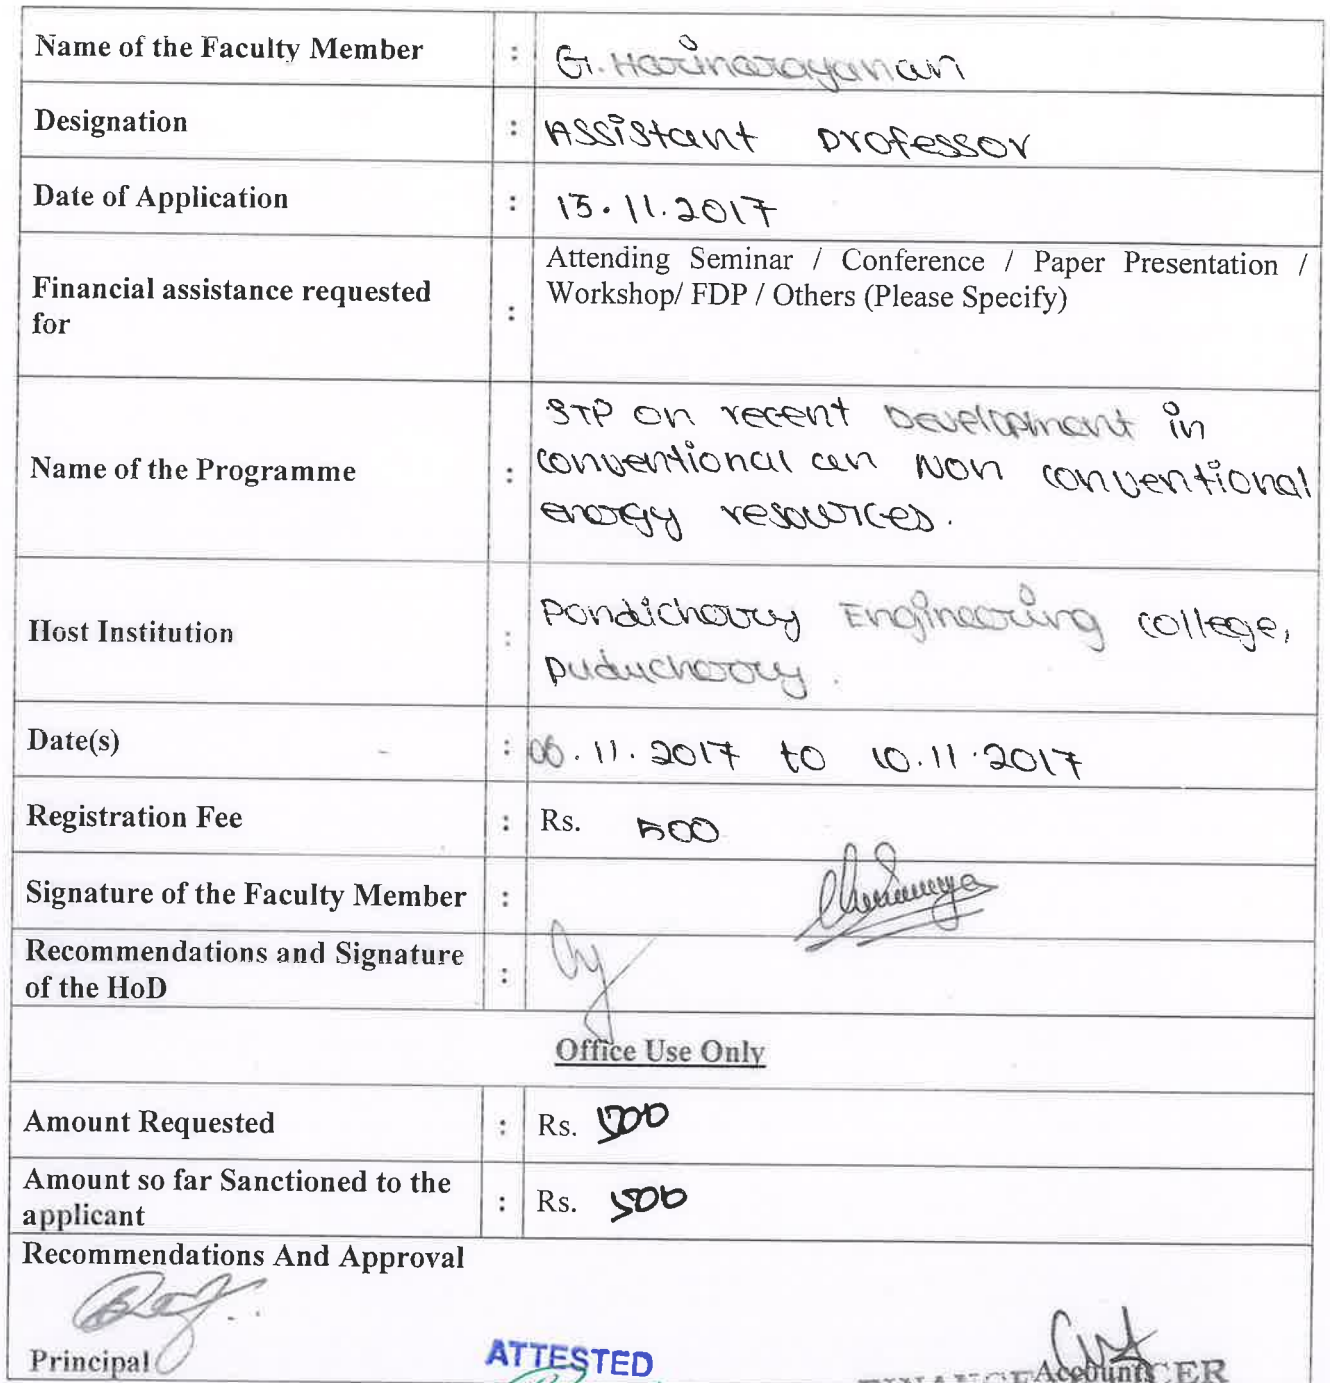 Name of the Faculty Member : G. Harinarayanan
Designation : Assistant professor
Date of Application : 15.11.2017
Financial assistance requested for : Attending Seminar / Conference / Paper Presentation /
Workshop/ FDP / Others (Please Specify)
Name of the Programme : STP on recent Development in
conventional an Non conventional
energy resources.
Host Institution : Pondicherry Engineering college,
puducherry.
Date(s) : 06.11.2017 to 10.11.2017
Registration Fee : Rs. 500
Signature of the Faculty Member :
Recommendations and Signature
of the HoD :
Office Use Only
Amount Requested : Rs. 500
Amount so far Sanctioned to the
applicant : Rs. 500
Recommendations And Approval
Principal
ATTESTED
Accounts